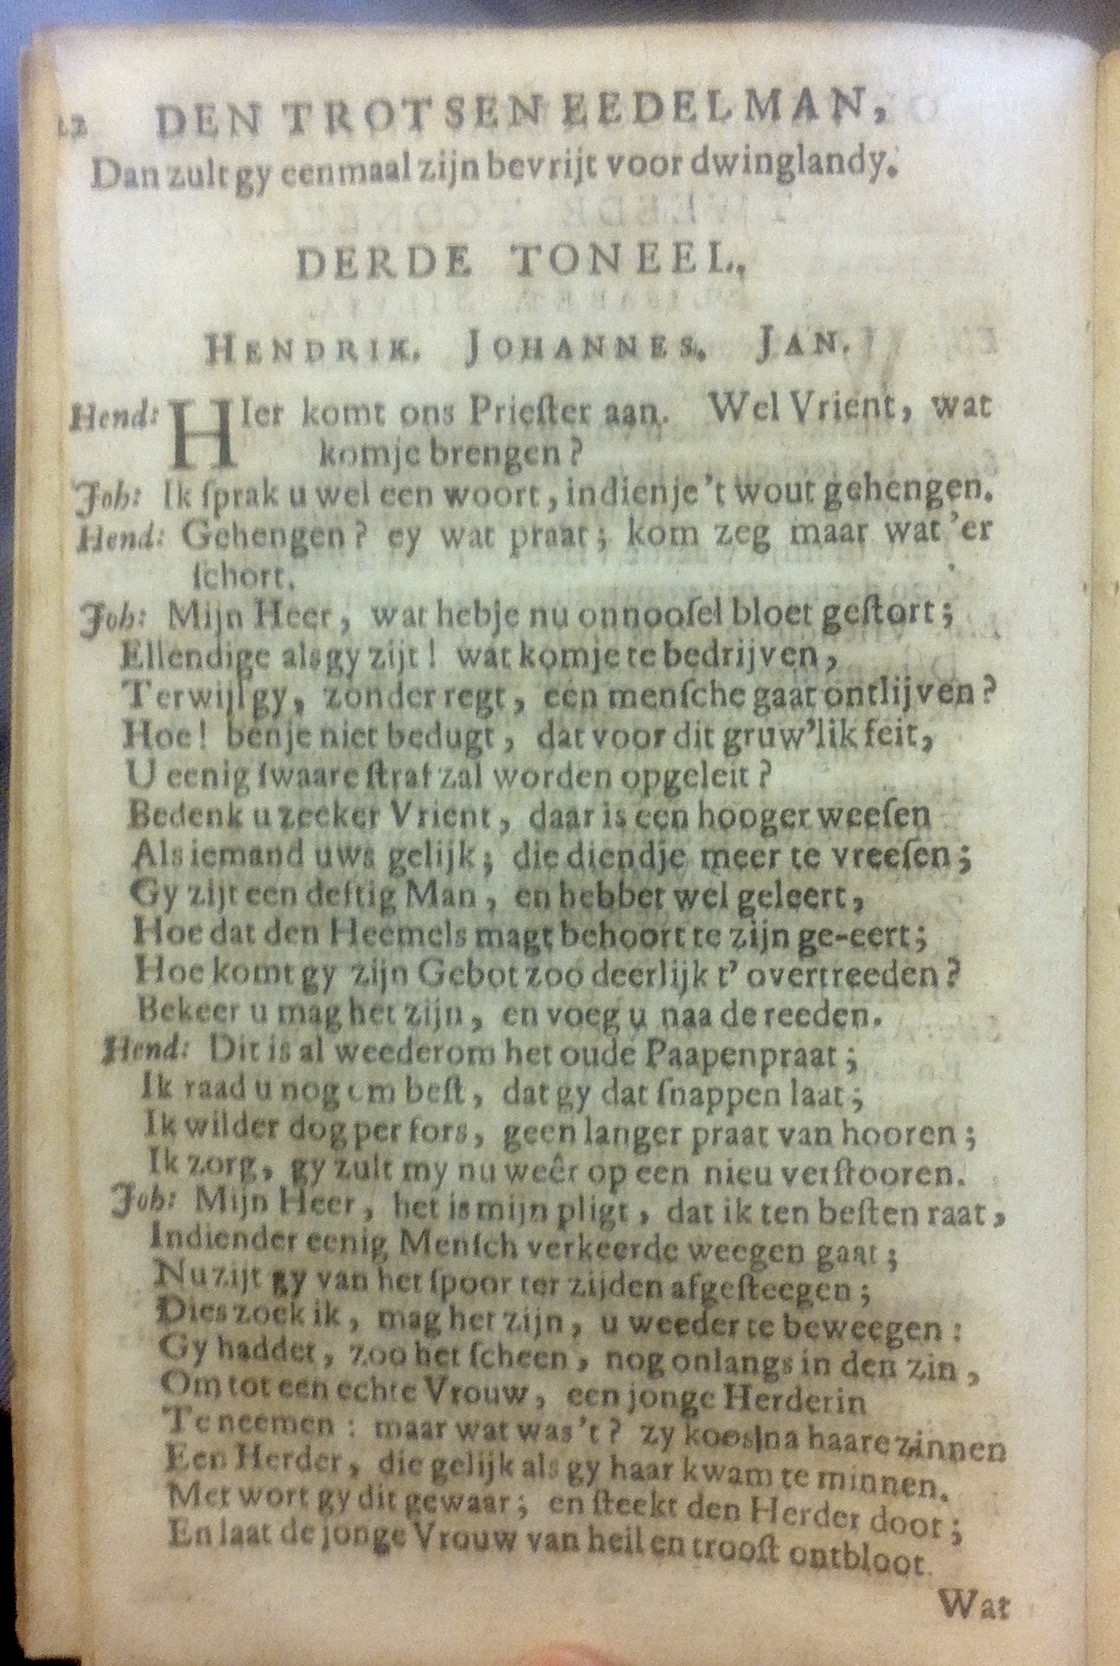 22 DEN TROTSEN EEDELMAN,
Dan zult gy eenmaal zijn bevrijt voor dwinglandy.
DERDE TONEEL.
HENDRIK. JOHANNES. JAN.
Hend: HIer komt ons Prieſter aan. Wel Vrient, wat
komje brengen?
Joh: Ik ſprak u wel een woort, indienje 't wout gehengen.
Hend: Gehengen? ey wat praat; kom zeg maar wat 'er
ſchort.
Joh: Mijn Heer, wat hebje nu onnooſel bloet geſtort;
Ellendige als gy zijt! wat komje te bedrijven,
Terwijl gy, zonder regt, een menſche gaat ontlijven?
Hoe! benje niet bedugt, dat voor dit gruw'lik feit,
U eenig ſwaare ſtraf zal worden opgeleit?
Bedenk u zeeker Vrient, daar is een hooger weeſen
Als iemand uws gelijk; die diendje meer te vreeſen;
Gy zijt een deftig Man, en hebbet wel geleert,
Hoe dat den Heemels magt behoort te zijn ge-eert;
Hoe komt gy zijn Gebot zoo deerlijk t' overtreeden?
Bekeer u mag het zijn, en voeg u naa de reeden.
Hend: Dit is al weederom het oude Paapenpraat;
Ik raad u nog om beſt, dat gy dat ſnappen laat;
Ik wilder dog per fors, geen langer praat van hooren;
Ik zorg, gy zult my nu weêr op een nieu verſtooren.
Joh: Mijn Heer, het is mijn pligt, dat ik ten beſten raat,
Indiender eenig Menſch verkeerde weegen gaat;
Nu zijt gy van het ſpoor ter zijden afgeſteegen;
Dies zoek ik, mag het zijn, u weeder te beweegen:
Gy haddet, zoo het ſcheen, nog onlangs in den zin,
Om tot een echte Vrouw, een jonge Herderin
Te neemen: maar wat was 't? zy koos na haare zinnen
Een Herder, die gelijk als gy haar kwam te minnen.
Met wort gy dit gewaar; en ſteekt den Herder doot;
En laat de jonge Vrouw van heil en trooſt ontbloot.
Wat